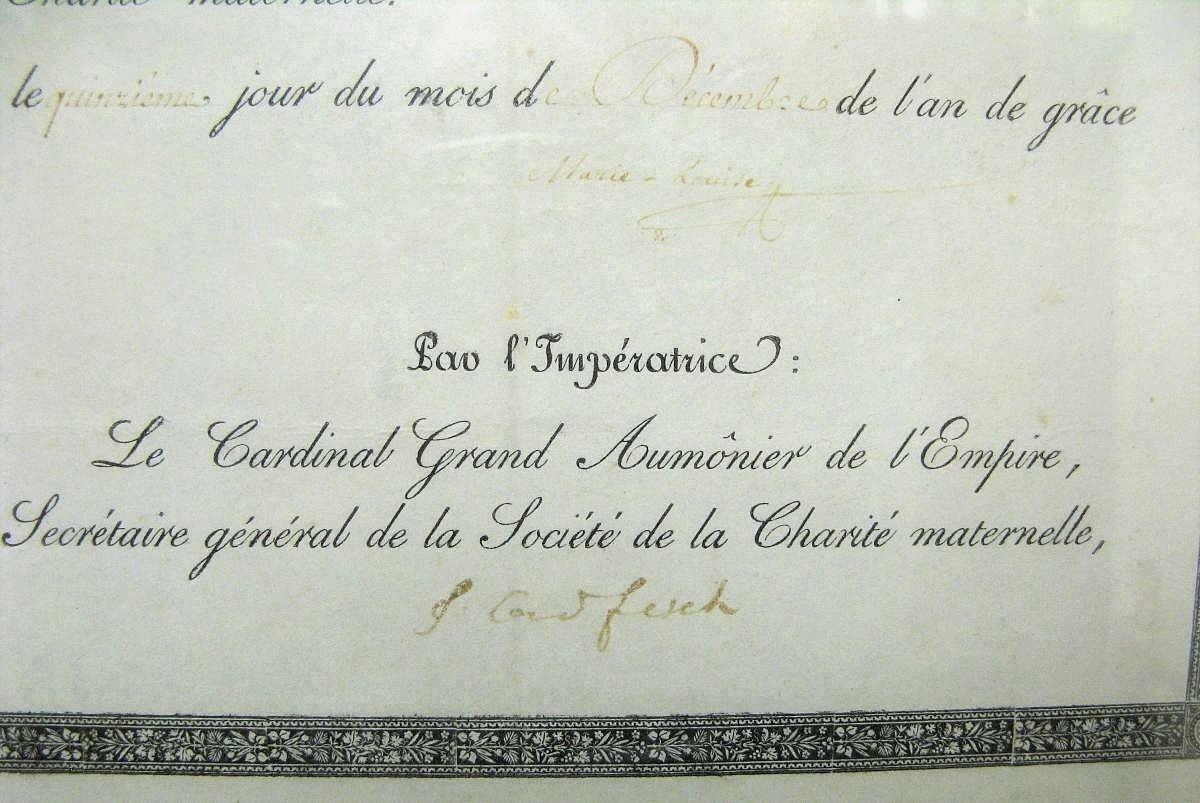 Charité maternelle.
le quinziéme jour du mois de Décembre de l'an de grâce
Marie-Louise
Par l'Impératrice :
Le Cardinal Grand Aumônier de l'Empire,
Secrétaire général de la Société de la Charité maternelle,
J. Card Fesch